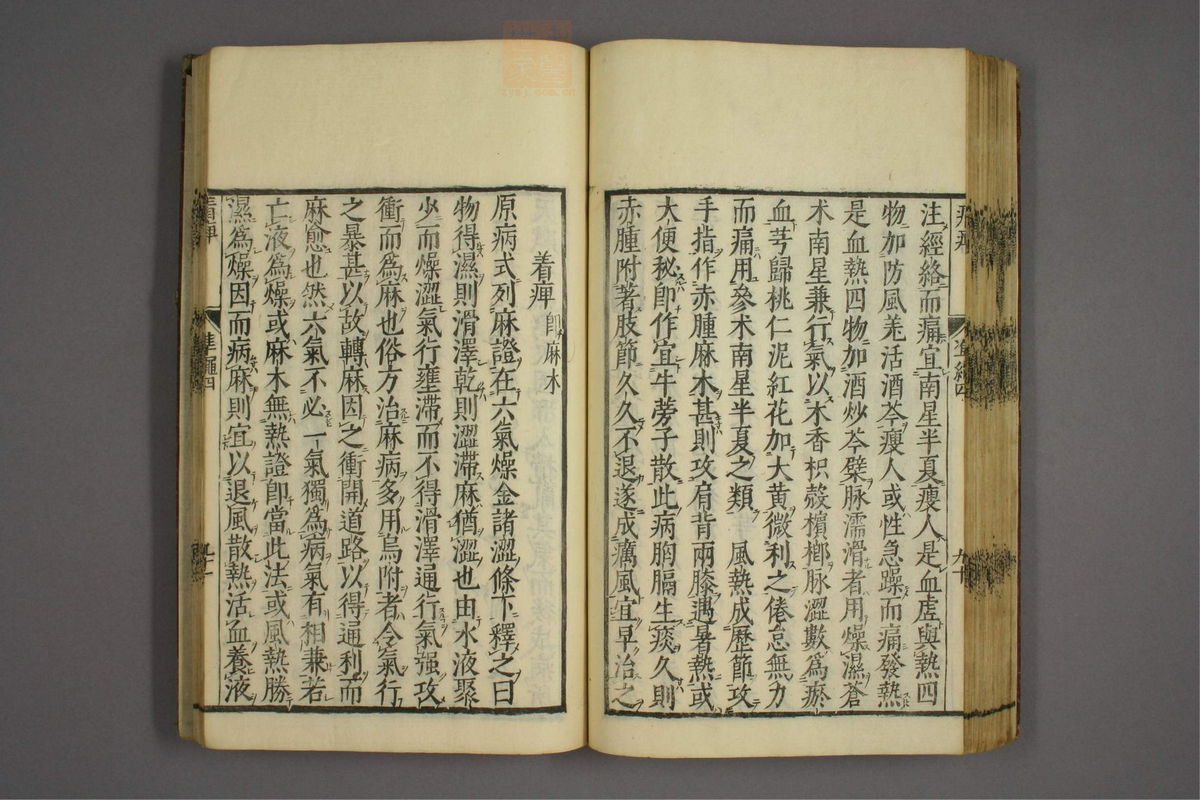 注經絡而痛宜南星半夏瘦人是血虛與熱四
物加防風羗活酒芩瘦人或性急躁而痛發熱
是血熱四物加酒炒芩檗脉濡滑者用燥濕蒼
术南星兼行氣以木香枳殼檳榔脉澀數為瘀
血芎歸桃仁泥紅花加大黄微利之倦怠無力
而痛用參术南星半夏之類　風熱成歷節攻
手指作赤腫麻木甚則攻肩背兩膝遇暑熱或
大便秘即作宜牛蒡子散此病胸膈生痰久則
赤腫附著肢節久久不退遂成癘風宜早治之
着痺 即麻木
原病式列麻證在六氣燥金諸澀條下釋之曰
物得濕則滑澤乾則澀滯麻猶澀也由水液聚
少而燥澀氣行壅滯而不得滑澤通行氣强攻
衝而為麻也俗方治麻病多用烏附者令氣行
之暴甚以故轉麻因之衝開道路以得通利而
麻愈也然六氣不必一氣獨為病氣有相兼若
亡液為燥或麻木無熱證即當此法或風熱勝
濕為燥因而病麻則宜以退風散熱活血養液
準繩四
九十